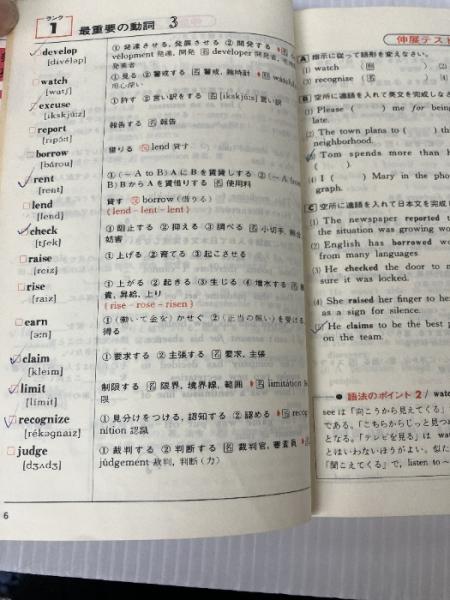 ランク
1 最重要の動詞 3
develop ①発達させる,発展させる ②開発する
[divéləp] velopment 発達,開発 名 developer 開発者
watch ①見る ②警戒する 名 警戒,腕時計
[wɑtʃ] 用心深い
excuse ①許す ②言い訳をする 名 [ikskjúːs] 言い訳
[ikskjúːz]
report 報告する 名 報告
[ripɔ́ːt]
borrow 借りる 反 lend 貸す
rent ①(~ A to B) AにBを賃貸しする ②(~ A from
[rent] B) BからAを賃借りする 名 使用料
lend 貸す 反 borrow (借りる)
[lend] (lend - lent - lent)
check ①阻止する ②抑える ③調べる 名 小切手,
[tʃek] 妨害
raise ①上げる ②育てる ③起こさせる
[reiz]
rise ①上がる ②起きる ③生じる ④増水する
[raiz] 昇給,上り
(rise - rose - risen)
earn ①(働いて金を)かせぐ ②(正当の報い)を受ける
[əːn] 得る
claim ①要求する ②主張する 名 要求,主張
[kleim]
limit 制限する 名 限界,境界線,範囲 limitation
[límit] 限
recognize ①見分けをつける,認知する ②認める 名 recog
[rékəgnaiz] nition 認識
judge ①裁判する ②判断する 名 裁判官,審査員
[dʒʌdʒ] júdgement 裁判,判断(力)
6
伸展テスト
A 指示に従って語形を変えなさい。
(1) watch ( ) (2)
(3) recognize ( ) (4)
B 空所に適語を入れて英文を完成しな
(1) Please ( ) me for being
late.
(2) The town plans to ( ) th
neighborhood.
(3) Tom spends more than h
(4) I ( ) Mary in the pho
graph.
C 空所に適語を入れて日本文を完成
(1) The newspaper reported t
the situation was growing wo
(2) English has borrowed wo
from many languages.
(3) He checked the door to m
sure it was locked.
(4) She raised her finger to he
as a sign for silence.
(5) He claims to be the best p
on the team.
●語法のポイント 2/ watc
see は「向こうから見えてくる」
である。「こちらからじっと見つめ
となる。「テレビを見る」は wat
とはいわないほうがよい。似た
「聞こえてくる」で, listen to ~